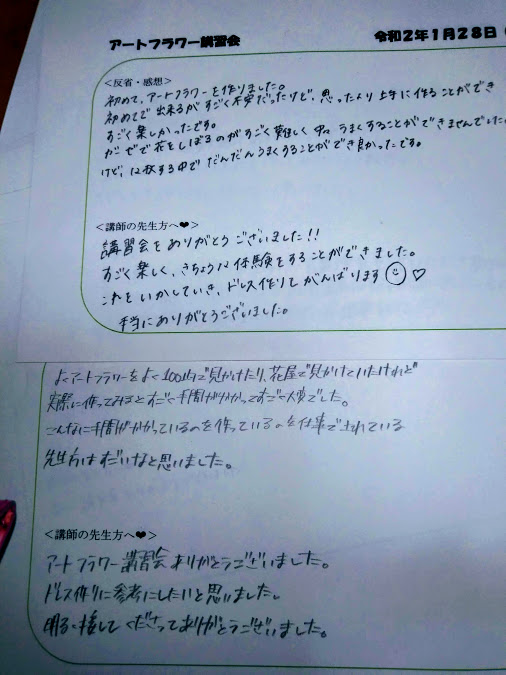 アートフラワー講習会 令和2年1月28日（
＜反省・感想＞
初めて、アートフラワーを作りました。
初めてで出来るかすごく不安だったけど、思ったより上手に作ることができ
すごく楽しかったです。
ガーゼで花をしぼるのがすごく難しく中々うまくすることができませんでした。
けど、12枚する中でだんだんうまくすることができ良かったです。
＜講師の先生方へ❤＞
講習会をありがとうございました!!
すごく楽しく、きちょうな体験をすることができました。
これをいかしていき、ドレス作りてがんばります☺♡
本当にありがとうございました。
よくアートフラワーをよく100均で見かけたり、花屋で見かけていたけれど
実際に作ってみるとすごく手間がかかってすごく大変でした。
こんなに手間がかかっているのを作っているのを仕事でされている
先生方はすごいなと思いました。
＜講師の先生方へ❤＞
アートフラワー講習会ありがとうございました。
ドレス作りに参考にしたいと思いました。
明るく接してくださってありがとうございました。